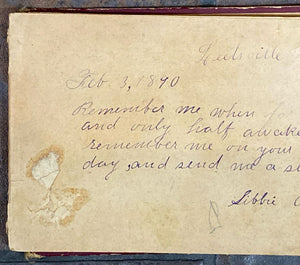 Leedsville
Feb. 3, 1890
Remember me when
and only half awake
remember me on your
day, and send me a
Libbie